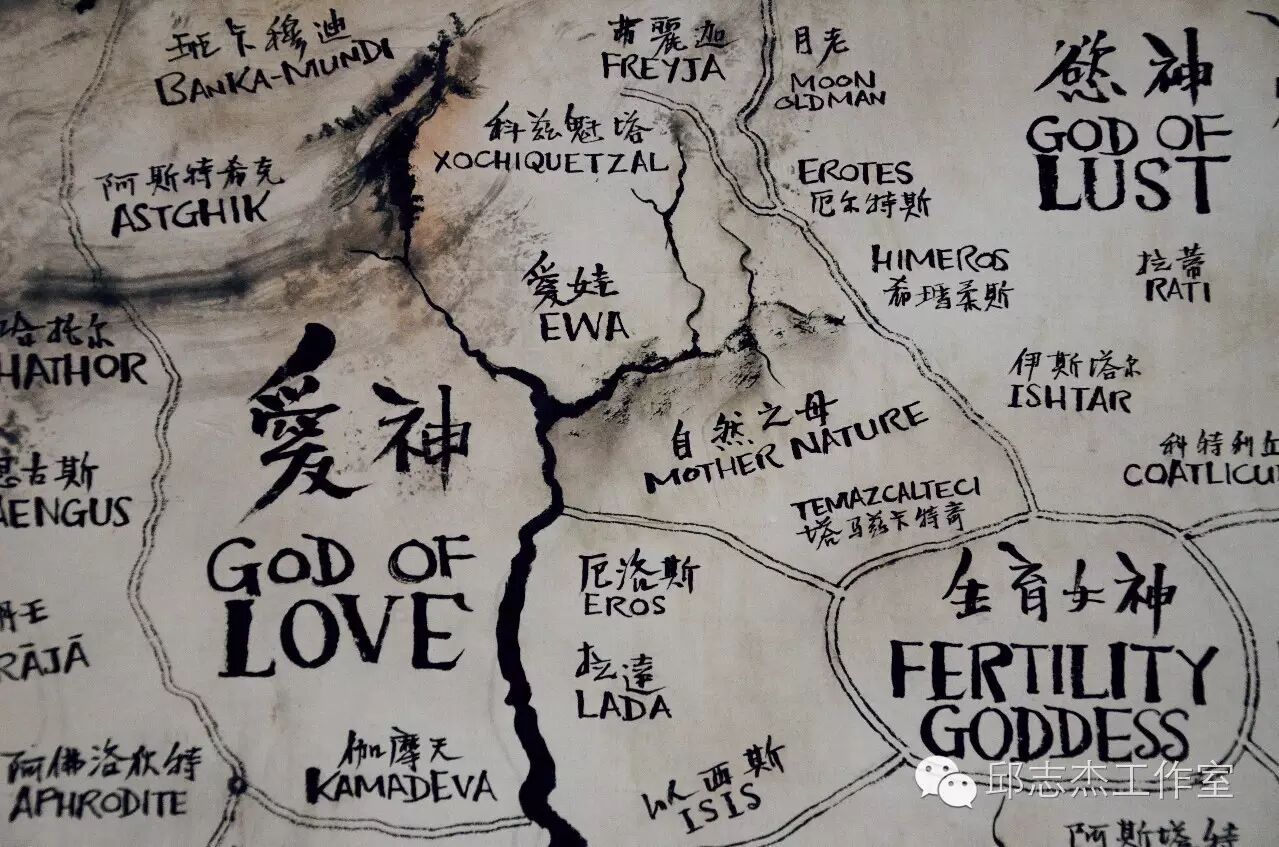 班卡穆迪
BANKA-MUNDI
茀麗迦
FREYJA
月老
MOON
OLDMAN
慾神
GOD OF
LUST
科兹魁塔
XOCHIQUETZAL
阿斯特希克
ASTGHIK
EROTES
厄尔特斯
HIMEROS
希瑪柔斯
拉蒂
RATI
愛娃
EWA
哈托尔
HATHOR
伊斯塔尔
ISHTAR
愛神
GOD OF
LOVE
自然之母
MOTHER NATURE
科特利丘
COATLICU
古斯
AENGUS
TEMAZCALTECI
塔马兹卡特奇
厄洛斯
EROS
生育女神
FERTILITY
GODDESS
王
RĀJĀ
拉達
LADA
阿佛洛狄特
APHRODITE
伽摩天
KAMADEVA
以西斯
ISIS
邱志杰工作室
阿斯塔特